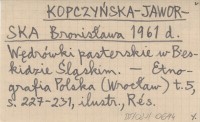 KOPCZYŃSKA-JAWOR-
SKA Bronisława 1961 d.
Wędrówki pasterskie w Bes-
kidzie Śląskim. — Etno-
grafia Polska (Wrocław) t.5,
s. 227-231, ilustr., Rés.